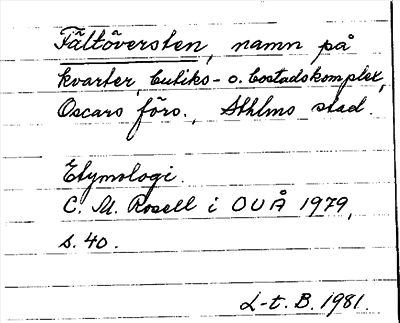 Fältöversten, namn på
kvarter, butiks- o. bostadskomplex,
Oscars förs., Sthlms stad.
Etymologi.
C. M. Rosell i OUÅ 1979,
s. 40.
L-t. B. 1981.